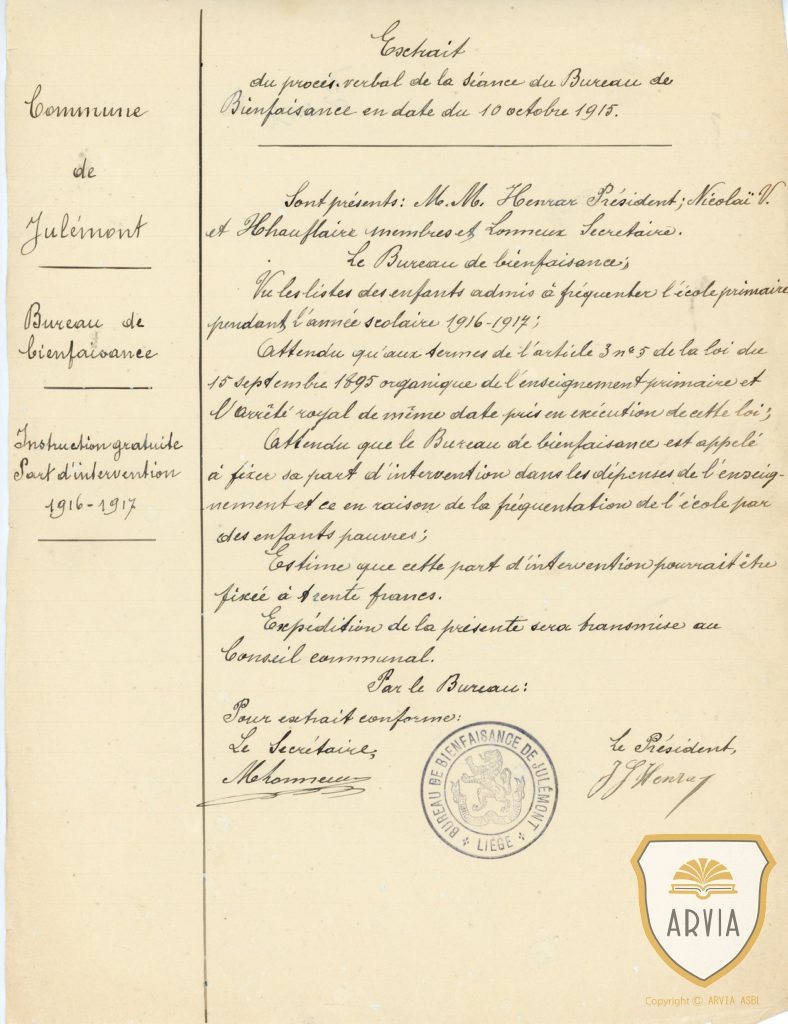 Commune
de
Julémont
Bureau de
bienfaisance
Instruction gratuite
Part d'intervention
1916-1917
Extrait
du procès-verbal de la séance du Bureau de
Bienfaisance en date du 10 octobre 1915.
Sont présents: M.M. Henrar Président; Nicolaï V.
et Hhauflaire membres et Lonneux Secrétaire.
Le Bureau de bienfaisance;
Vu les listes des enfants admis à fréquenter l'école primaire
pendant l'année scolaire 1916-1917;
Attendu qu'aux termes de l'article 3 n° 5 de la loi du
15 septembre 1895 organique de l'enseignement primaire et
l'arrêté royal de même date pris en exécution de cette loi;
Attendu que le Bureau de bienfaisance est appelé
à fixer sa part d'intervention dans les dépenses de l'enseig-
nement et ce en raison de la fréquentation de l'école par
des enfants pauvres;
Estime que cette part d'intervention pourrait être
fixée à trente francs.
Expédition de la présente sera transmise au
Conseil communal.
Par le Bureau:
Pour extrait conforme:
Le Secrétaire,
Le Président,
MLonneux
J J Henrar
BUREAU DE BIENFAISANCE DE JULÉMONT
LIÉGE
ARVIA
Copyright © ARVIA ASBL